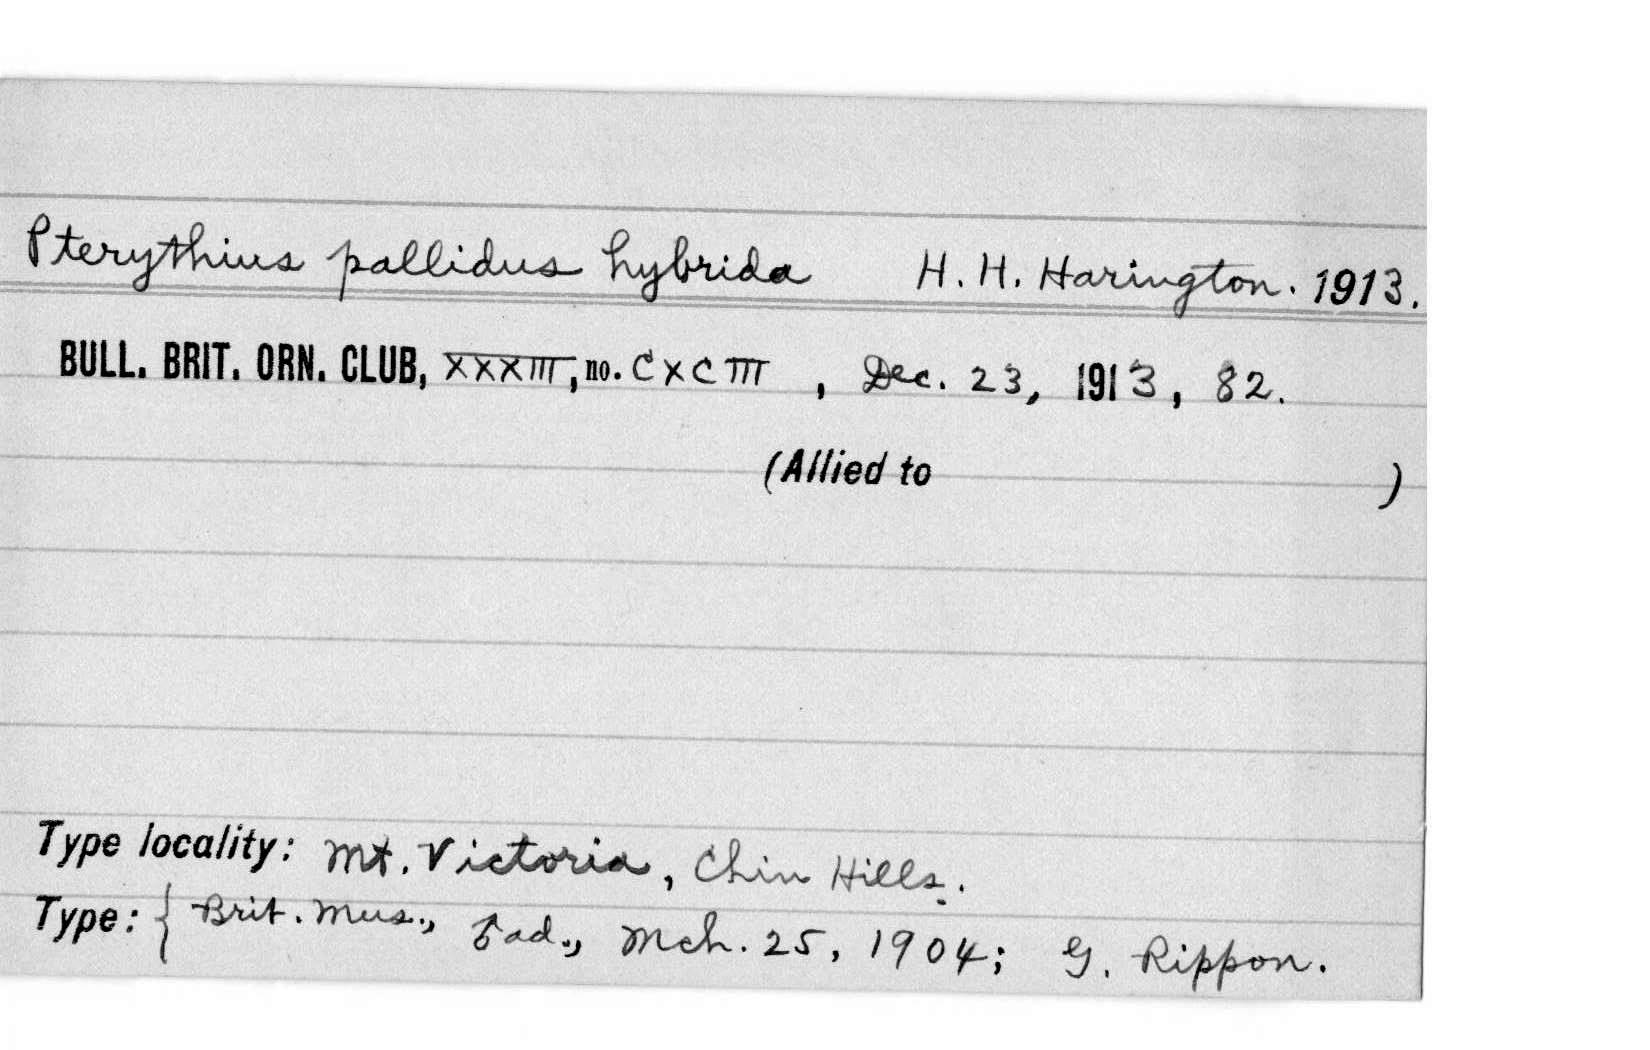 Pterythius pallidus hybrida H. H. Harington. 1913.
BULL. BRIT. ORN. CLUB, XXXIII, no. CXCIII, Dec. 23, 1913, 82.
(Allied to )
Type locality: Mt. Victoria, Chin Hills.
Type: { Brit. Mus., ad., Mch. 25, 1904; G. Rippon.